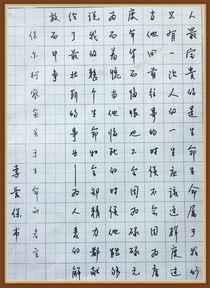 人最宝贵的是生命生命属于我们
只有一次人的一生应该这样度过
当他回首往事的时候不会因为虚
度年华而悔恨也不会因碌碌无
为而羞愧在临死的时候他能够
说我的整个生命和全部精力都献
给了最壮丽的事业——为人类的解
放而斗争
保尔柯察金关于生命的名言
李爱保书